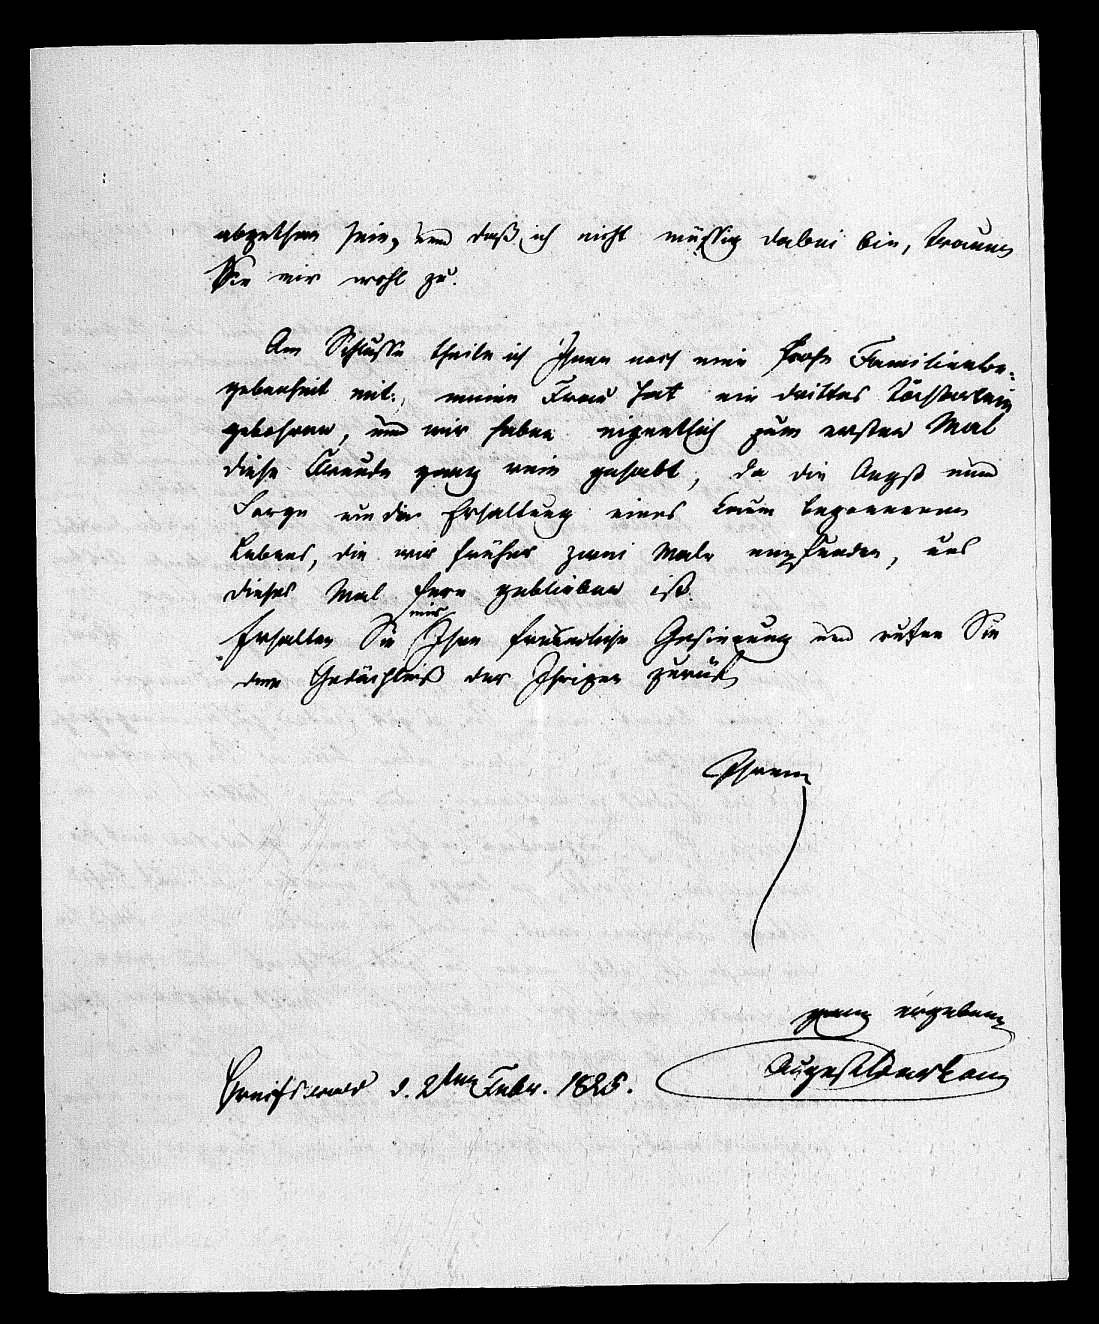 abgethan sein, und daß ich nicht müssig dabei bin, trauen
Sie mir wohl zu.
Am Schlusse theile ich Ihnen noch eine frohe Familienbe-
gebenheit mit: meine Frau hat ein drittes Töchterlein
gebohren, und wir haben eigentlich zum ersten Mal
diese Freude ganz rein gehabt, da die Angst und
Sorge um die Erhaltung eines kaum begonnenen
Lebens, die wir früher zwei Male empfunden, uns
dieses Mal fern geblieben ist.
Erhalten Sie mir Ihre freundliche Gesinnung und rufen Sie
dem Gedächtniß der Ihrigen zurück
Ihren
ganz ergebenen
Greifswald d. 2ten Febr. 1825.